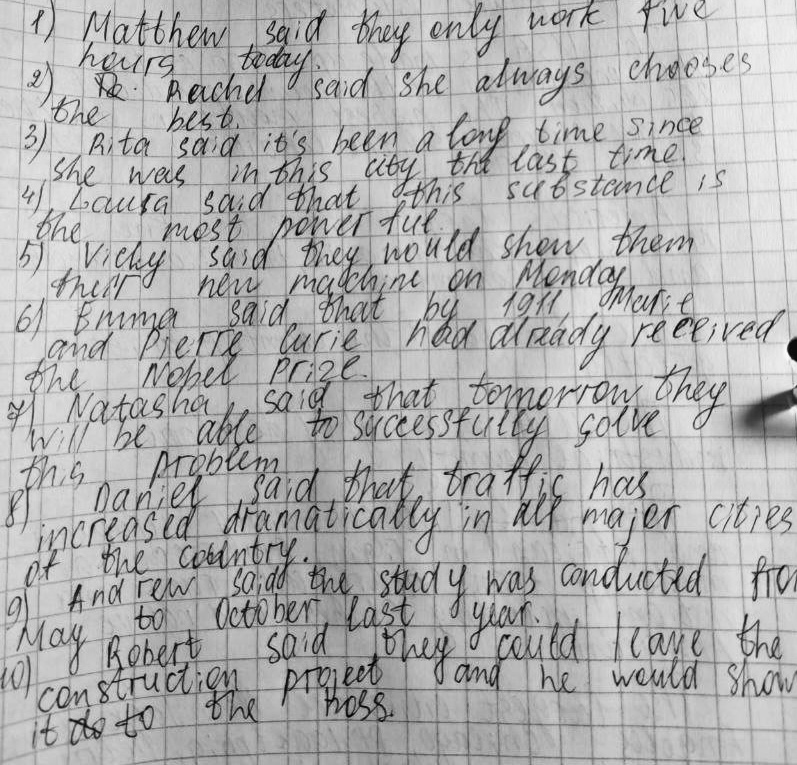 1) Matthew said they only work five
hours today.
2) Rachel said she always chooses
the best.
3) Rita said it's been a long time since
she was in this city the last time.
4) Laura said that this substance is
the most powerful.
5) Vicky said they would show them
their new machine on Monday
6) Emma said that by 1911, Marie
and Pierre Curie had already received
the Nobel Prize.
7) Natasha said that tomorrow they
will be able to successfully solve
this problem
8) Daniel said that traffic has
increased dramatically in all major cities
of the country.
9) Andrew said the study was conducted from
May to October last year.
10) Robert said they could leave the
construction project and he would show
it to the boss.